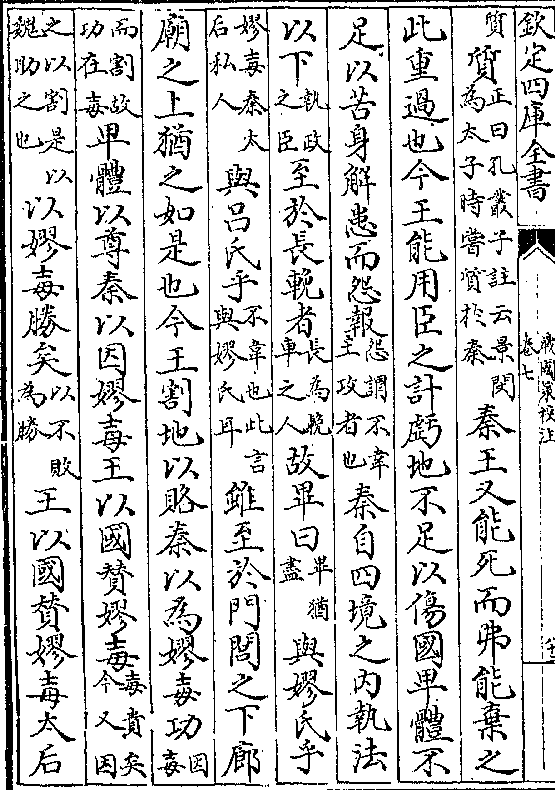 欽定四庫全書
戰國策校注
卷七
質質正曰孔叢子註云景閔為太子時嘗質於秦秦王又能死而弗能棄之
此重過也今王能用臣之計虧地不足以傷國卑體不
足以苦身解患而怨報怨謂不韋主攻者也秦自四境之內執法
以下執政之臣至於長輓者長為輓車之人故畢曰畢猶盡與嫪氏乎
嫪毐秦太后私人與呂氏乎不韋也此言與嫪氏耳雖至於門閭之下廊
廟之上猶之如是也今王割地以賂秦以為嫪毐功因毐
而割故功在毐卑體以尊秦以因嫪毐王以國贊嫪毐毐貴矣今又因
之以割是以魏助之也以嫪毐勝矣以不敗為勝王以國贊嫪毐太后